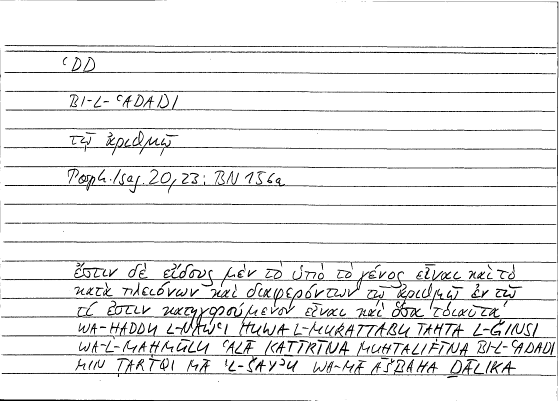 ʿDD
BI-L-ʿADADI
τῷ ἀριθμῷ
Porph. Isag. 20,23; BN 156a
ἔστιν δὲ εἴδους μὲν τὸ ὑπὸ τὸ γένος εἶναι καὶ τὸ
κατὰ πλειόνων καὶ διαφερόντων τῷ ἀριθμῷ ἐν τῷ
τί ἐστιν κατηγορούμενον εἶναι καὶ ὅσα τοιαῦτα·
WA-ḤADDU L-NAWʿI HUWA L-MURATTABU TAḤTA L-ǦINSI
WA-L-MAḤMŪLU ʿALĀ KAṮĪRĪNA MUḪTALIFĪNA BI-L-ʿADADI
MIN ṬARĪQI MĀ ʾL-ŠAYʾU WA-MĀ AŠBAHA ḎĀLIKA